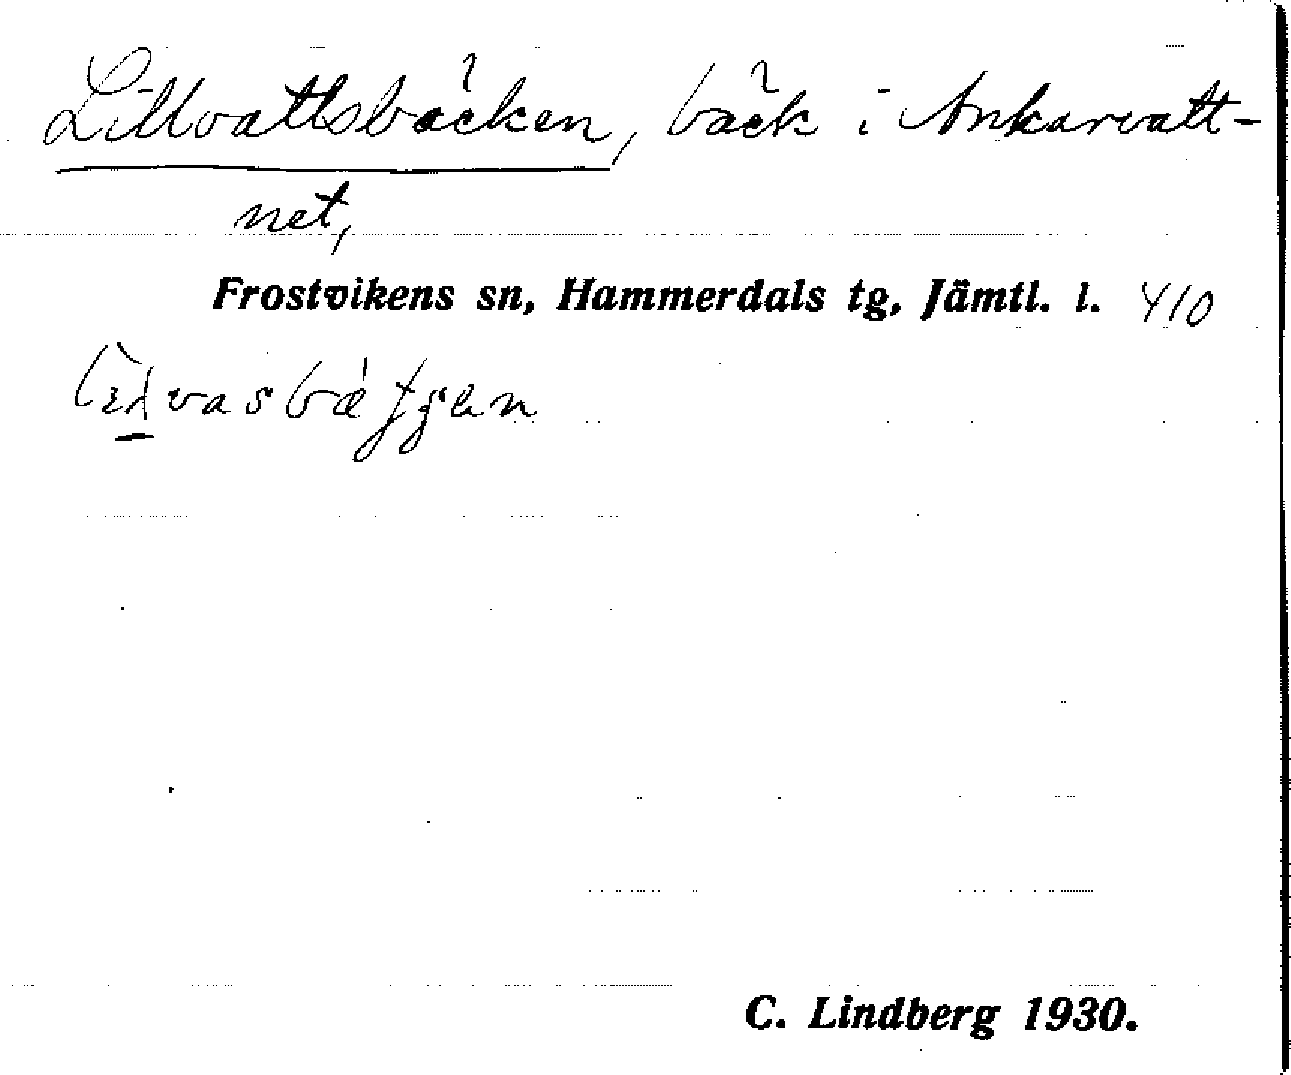 Lillvattsbäcken, bäck i Ankarvatt-
net,
Frostvikens sn, Hammerdals tg, Jämtl. l. 410
C. Lindberg 1930.